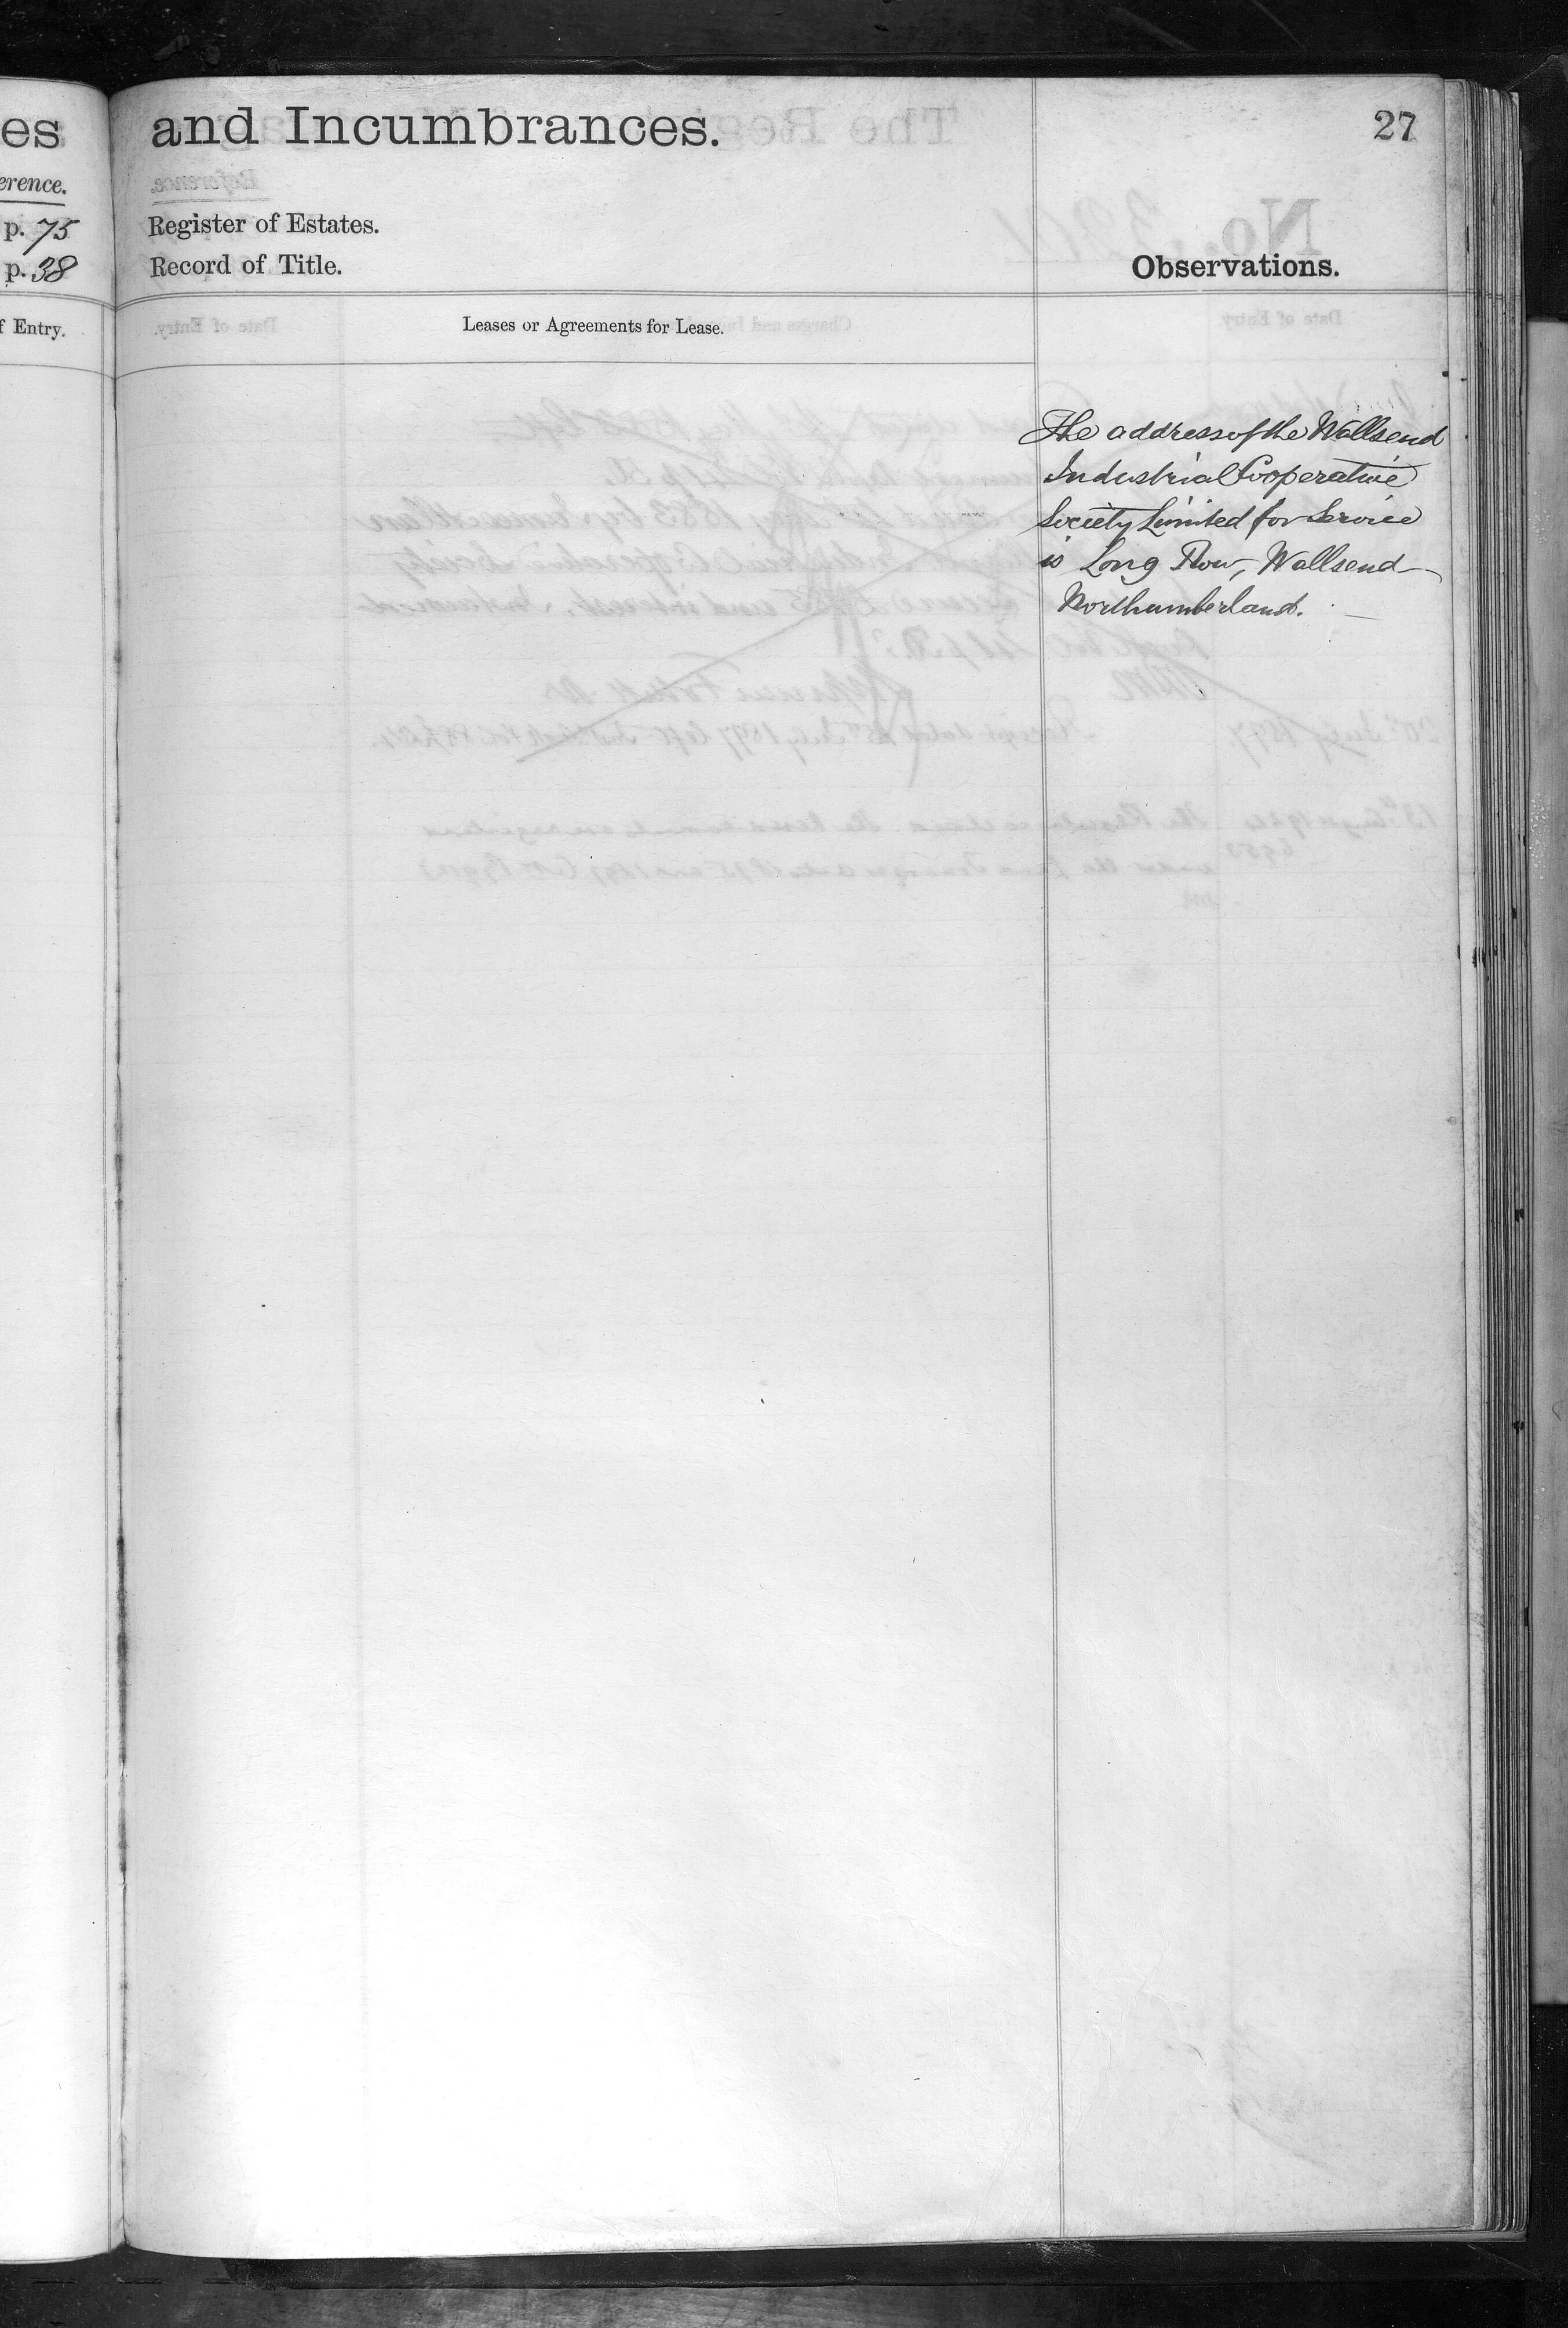 es
erence.
p. 75
p. 38
f Entry.
and Incumbrances.
27
Register of Estates.
Record of Title.
Observations.
Leases or Agreements for Lease.
The address of the Wallsend
Industrial Cooperative
Society Limited for Service
is Long Row, Wallsend
Northumberland.